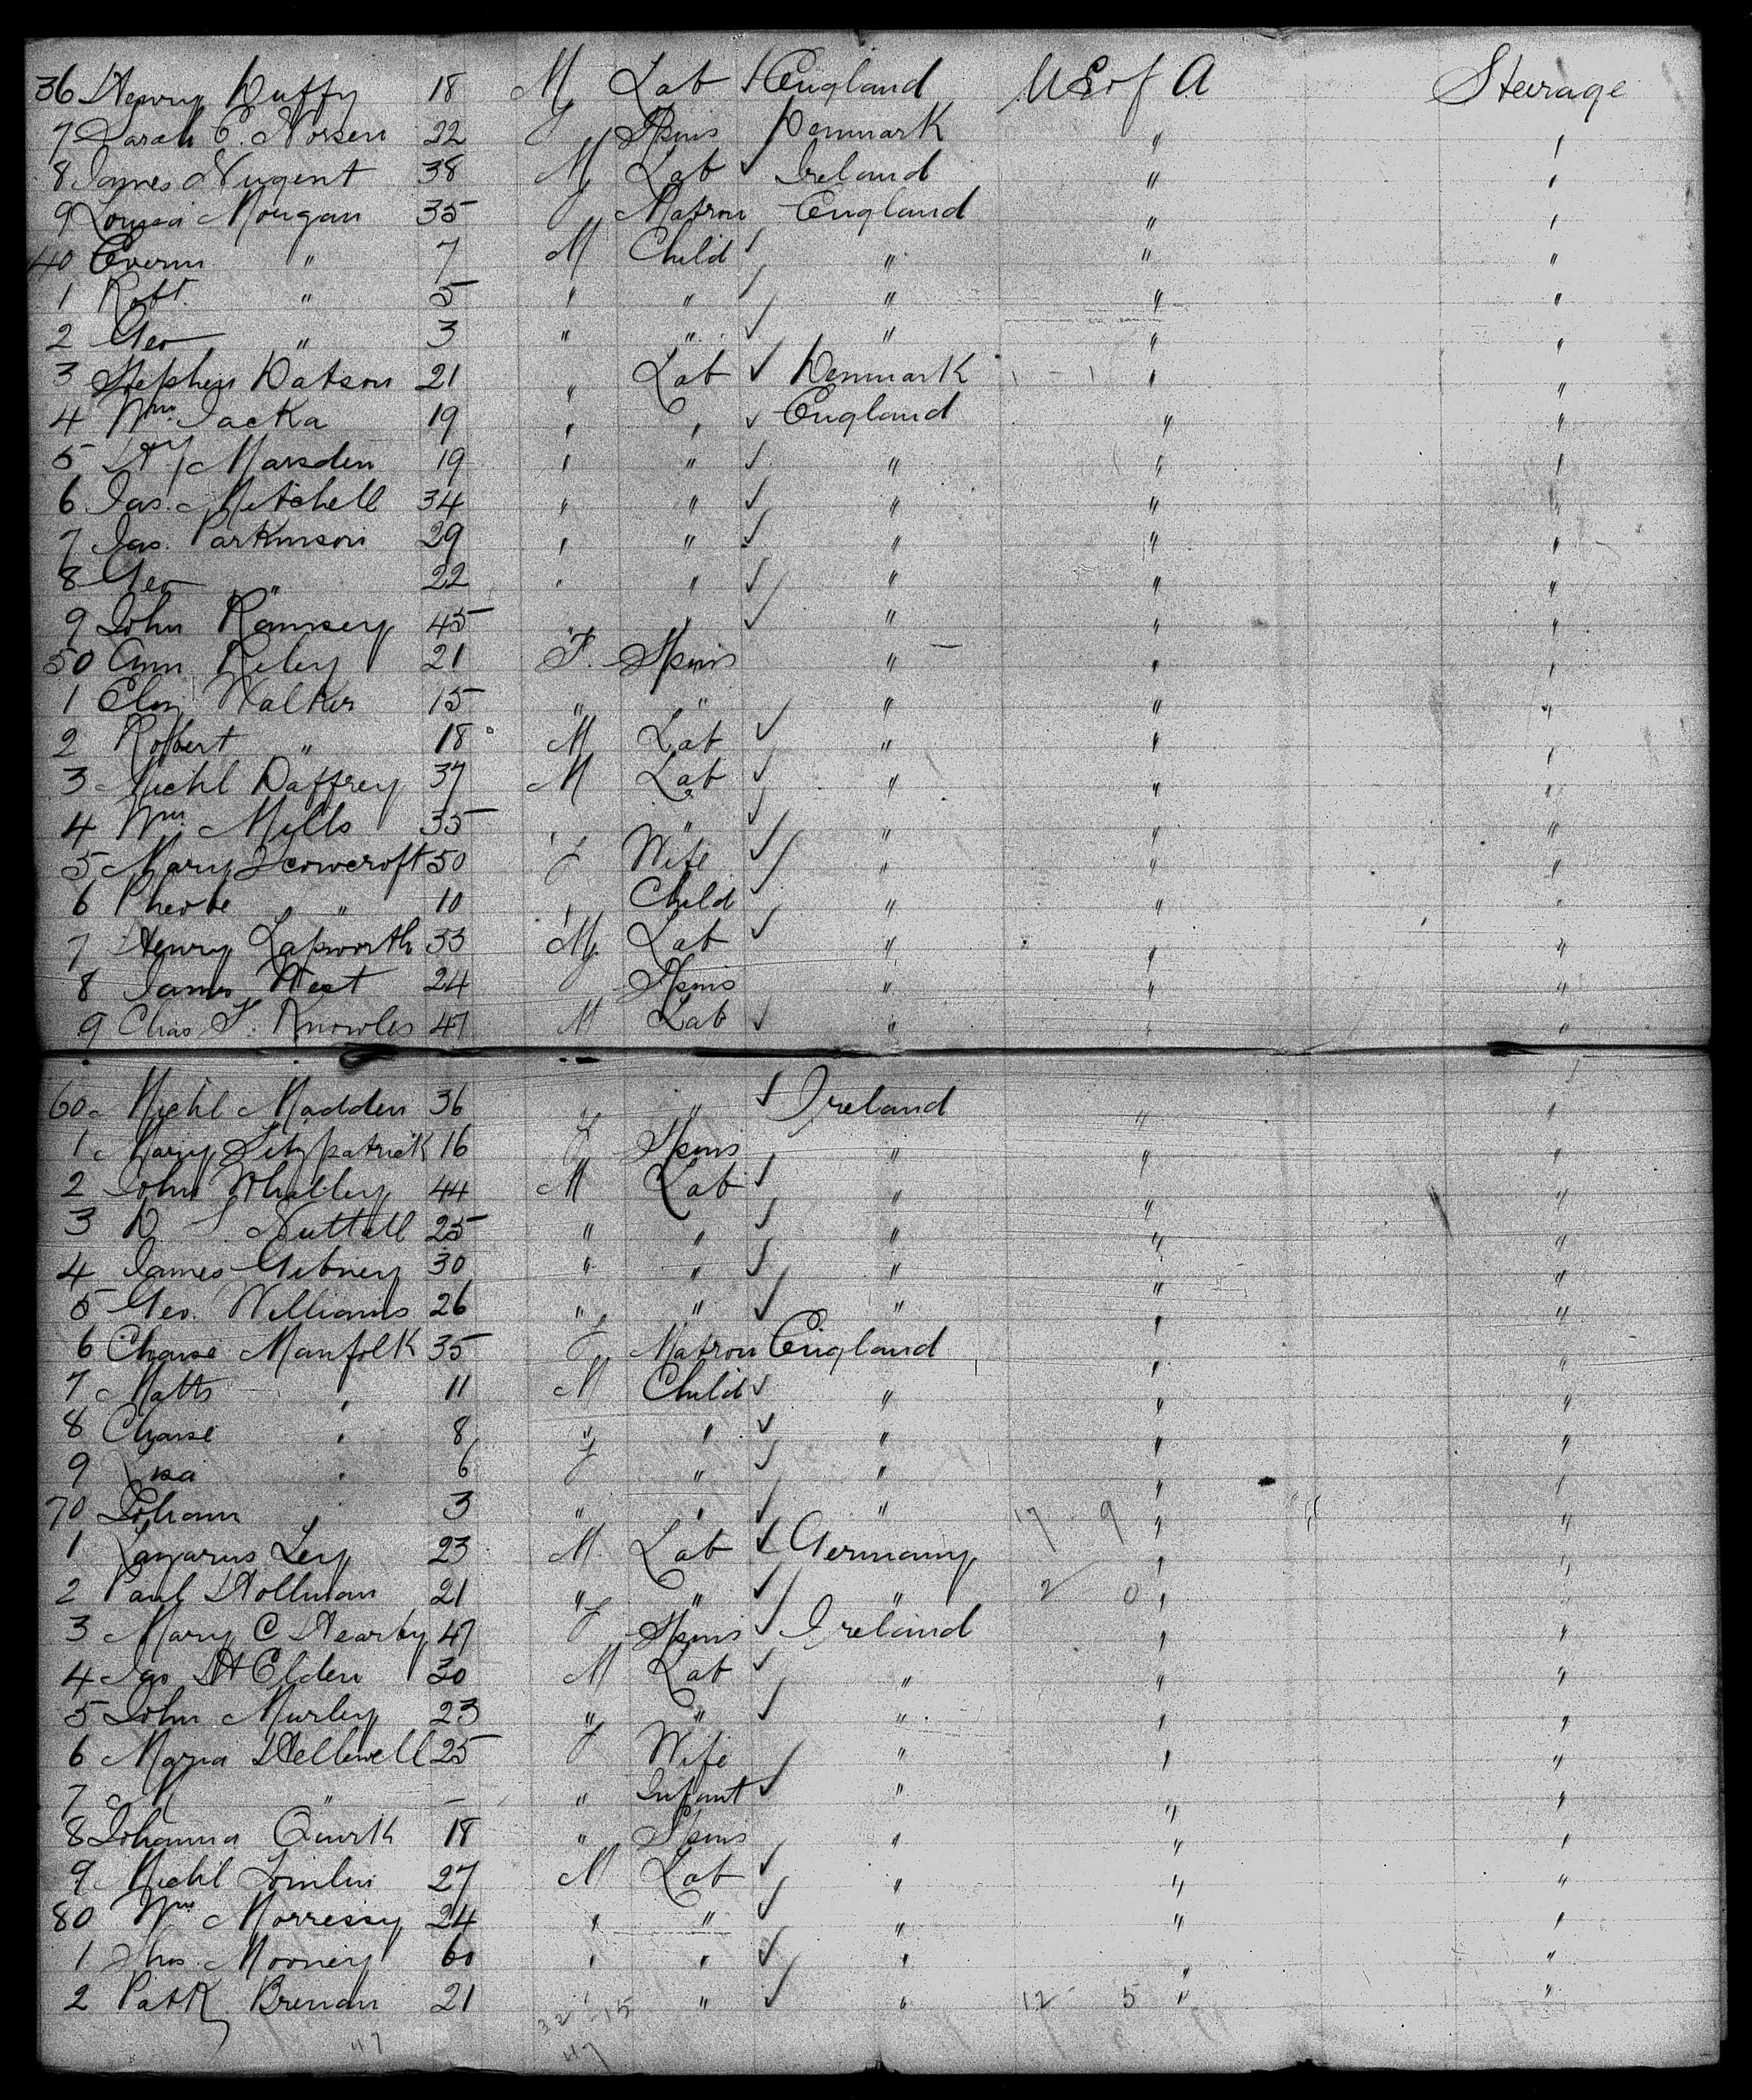 36 Henry Duffy 18 M Lab England US of A Steerage
7 Sarah C. Norsen 22 F Spins Denmark " "
8 James Nugent 38 M Lab ✓ Ireland " "
9 Louisa Morgan 35 F Matron England " "
40 " 7 M Child ✓ " " "
1 Robt. " 5 " " ✓ " " "
2 Geo " 3 " " ✓ " " "
3 Stephen Datson 21 " Lab ✓ Denmark " "
4 Wm. Jacka 19 " " ✓ England " "
5 Hy Marsden 19 " " ✓ " " "
6 Jas. Mitchell 34 " " ✓ " " "
7 Jas. Parkinson 29 " " ✓ " " "
8 Geo " 22 " " ✓ " " "
9 John Ramsey 45 " " ✓ " " "
50 Ann Riley 21 F. Spins " " "
1 Eliz Walker 15 " " " " "
2 Robert " 18 M Lab ✓ " " "
3 Michl Daffrey 37 M Lab ✓ " " "
4 Wm. Mills 35 " " ✓ " " "
5 Mary Scowcroft 50 F Wife ✓ " " "
6 Pheobe " 10 " Child ✓ " " "
7 Henry Lapworth 33 M Lab ✓ " " "
8 James West 24 F Spins " " "
9 Chas F. Knowles 47 M Lab ✓ " " "
60 Michl Madden 36 " " ✓ Ireland " "
1 Mary Fitzpatrick 16 F Spins " " "
2 John Whalley 44 M Lab ✓ " " "
3 D. S. Nuttall 25 " " ✓ " " "
4 James Gibney 30 " " ✓ " " "
5 Geo. Williams 26 " " ✓ " " "
6 Chaise Manfolk 35 F Matron England " "
7 Matts " 11 M Child ✓ " " "
8 Chaise " 8 " " ✓ " " "
9 " 6 F " ✓ " " "
70 Johann " 3 " " ✓ " 17 9 " "
1 Lazarus Ley 23 M Lab ✓ Germany " "
2 Paul Hollman 21 " " ✓ " 2 0 " "
3 Mary C Hearty 47 F Spins ✓ Ireland " "
4 Jas H Elden 30 M Lab ✓ " " "
5 John Murley 23 " " ✓ " " "
6 Maria Hellewell 25 F Wife " " "
7 M " – " Infant ✓ " " "
8 Johanna Quirk 18 " Spins " " "
9 Michl Tomlin 27 M Lab ✓ " " "
80 Wm Morressy 24 " " ✓ " " "
1 Thos. Mooney 60 " " ✓ " " "
2 Patk Brennan 21 " " ✓ " 12 5 " "
32 15
47 47